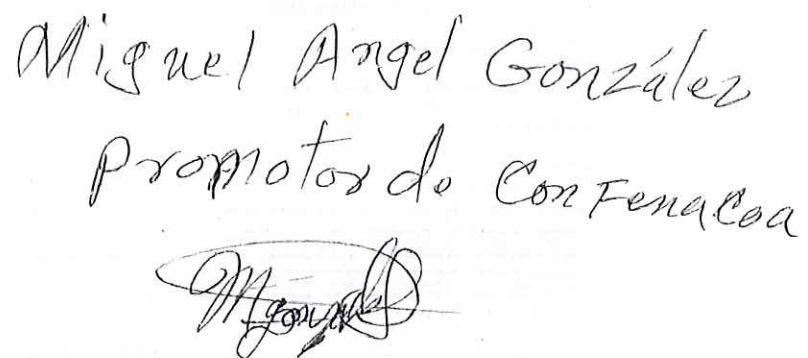 Miguel Angel González
Promotor de ConFenacoa